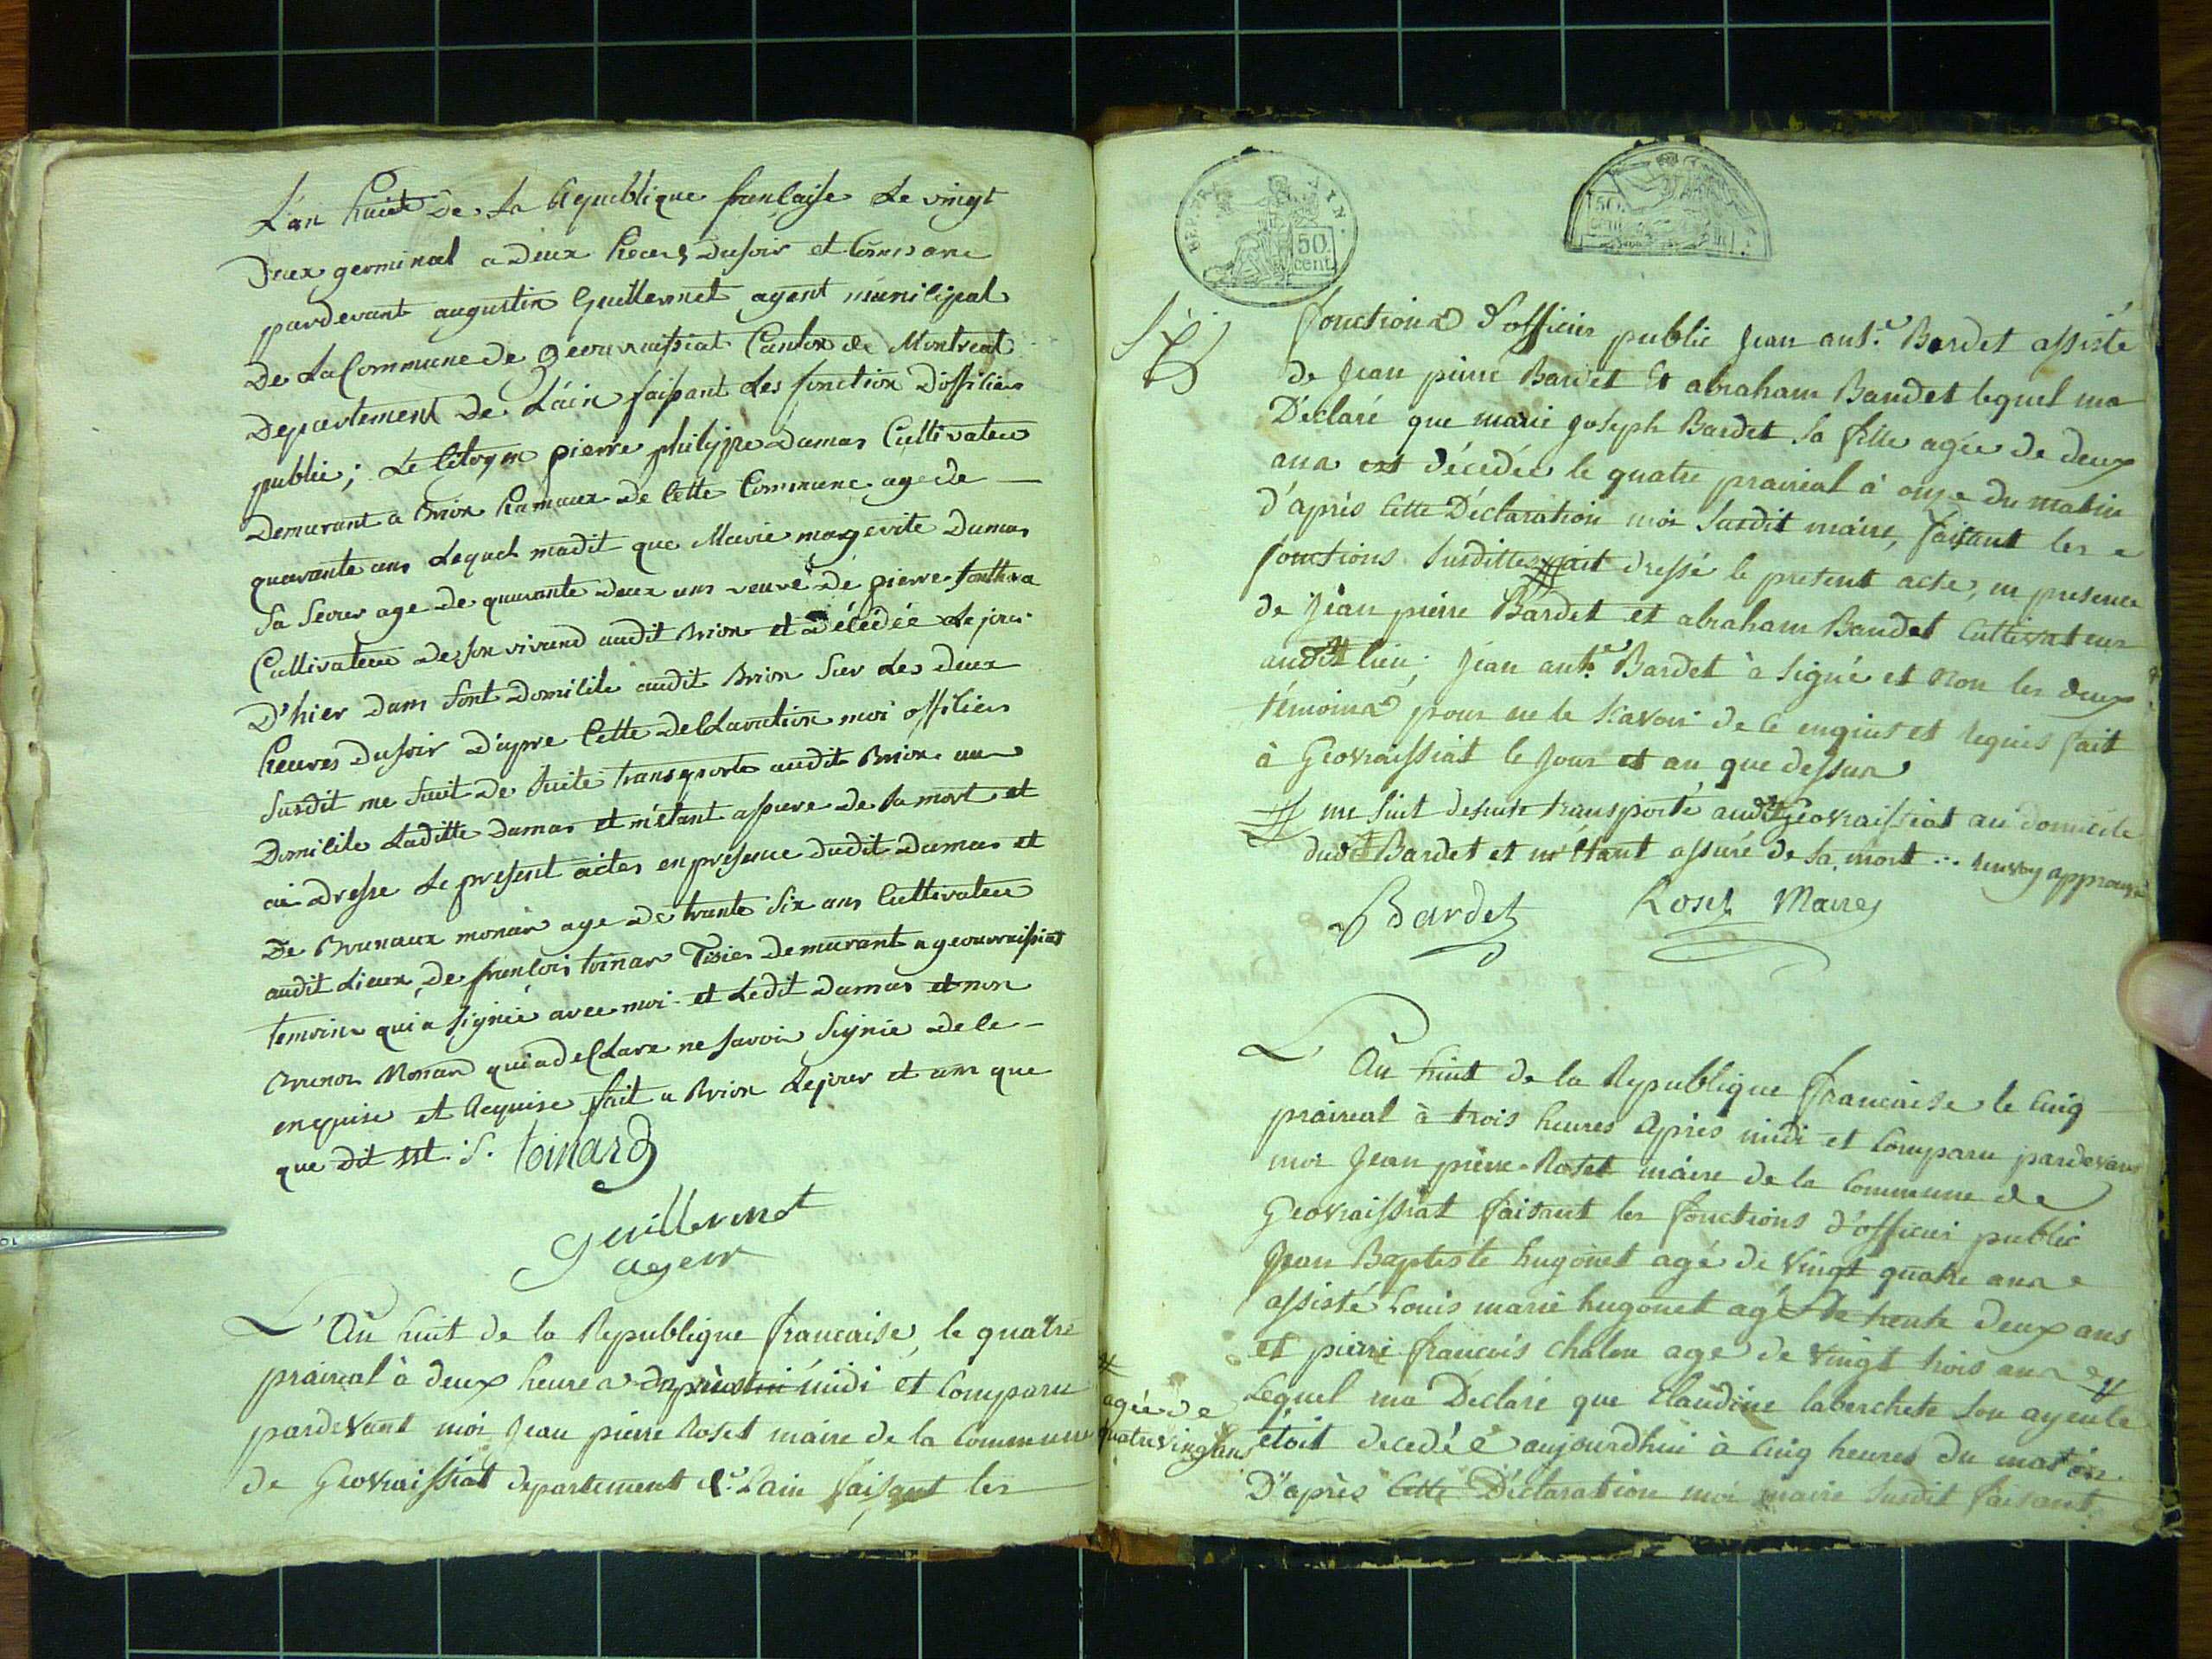 L'an huiet De La République françaisse Le vingt
Deux germinal a Deux heures Dusoir et Comparu
pardevant augustin Guillermet agent municipal
De La Commune de geouvraissiat Canton de Montreal
Departement De L'ain faissant Les fonction D'officier
public; Le Citoyen pierre philippe Dumas Cultivateur
Demurant a Brion hamaux De Cette Commune age de —
quarante ans Lequel madit que Marie margerite Dumas
Sa Seour age De quarante Deux ans veuve De pierre
Cultivateur De son vivand audit Brion et Décédée Le jour
D'hier Dans Sont Domicile audit Brion Sur Les Deux
heures Dusoir D'apre Cette Declaration moi officier
Susdit me Suit De Suite transporte audit Brion au
Domicile Laditte Dumas et m'étant assure De Sa mort et
ai Dresse Le present actes en presence dudit Dumas et
De Brunaux monar age De trante Six ans Cultivateur
audit Lieux, De françois toinar Tisier Demurant a geouvraissiat
temoins qui a Signie avec moi et Ledit Dumas et non
Brunon Monar qui a declare ne Savoir Signie De Ce —
enquise et Requise fait a Brion Lejour et ans que
que dit est. S. toinard
Guillermet
agent
L'An huit de la Republique francaise, le quatre
prairial à deux heures après midi et Comparu
pardevant moi Jean pierre Roset maire de la Commune
de Geovraissiat departement de Lain faisant les
Six
REP. FRA.
50 cent.
50
fonctions d'officier public Jean ant.e Bardet assisté
de Jean pierre Bardet Et abraham Baudet lequel ma
Déclaré que marie Joseph Bardet Sa fille agée de deux
ans est décédée le quatre prairial à onze du matin
d'après Cette Déclaration moi Susdit maire, faisant les
fonctions Susdittes # ait dressé le présent acte, en presence
de Jean pierre Bardet et abraham Baudet Cultivateurs
audit lieu; Jean ant.e Bardet à Signé et non les deux
témoins pour ne le Scavoir de Ce enquis et requis fait
à Geovraissiat le Jour et an que dessus
# me Suit desuite transporté audit Geovraissiat au domicile
dudit Bardet et m'étant assuré de Sa mort ... renvoy approuvé
Bardet Roset Maire
L'An huit de la Republique francaise le Cinq
prairial à trois heures après midi et Comparu pardevant
moi Jean pierre Roset maire de la Commune de
Geovraissiat faisant les fonctions d'officier public
Jean Baptiste hugonet agé de Vingt quatre ans
assisté Louis marie hugonet agé de trente deux ans
et pierre francois chalon age de Vingt trois ans #
Lequel ma Déclaré que Claudine laberchete Son ayeule
#
agée de
quatre vingt ans
étoit decedée aujourdhui à Cinq heures du matin
D'après Cette Déclaration moi maire Susdit faisant